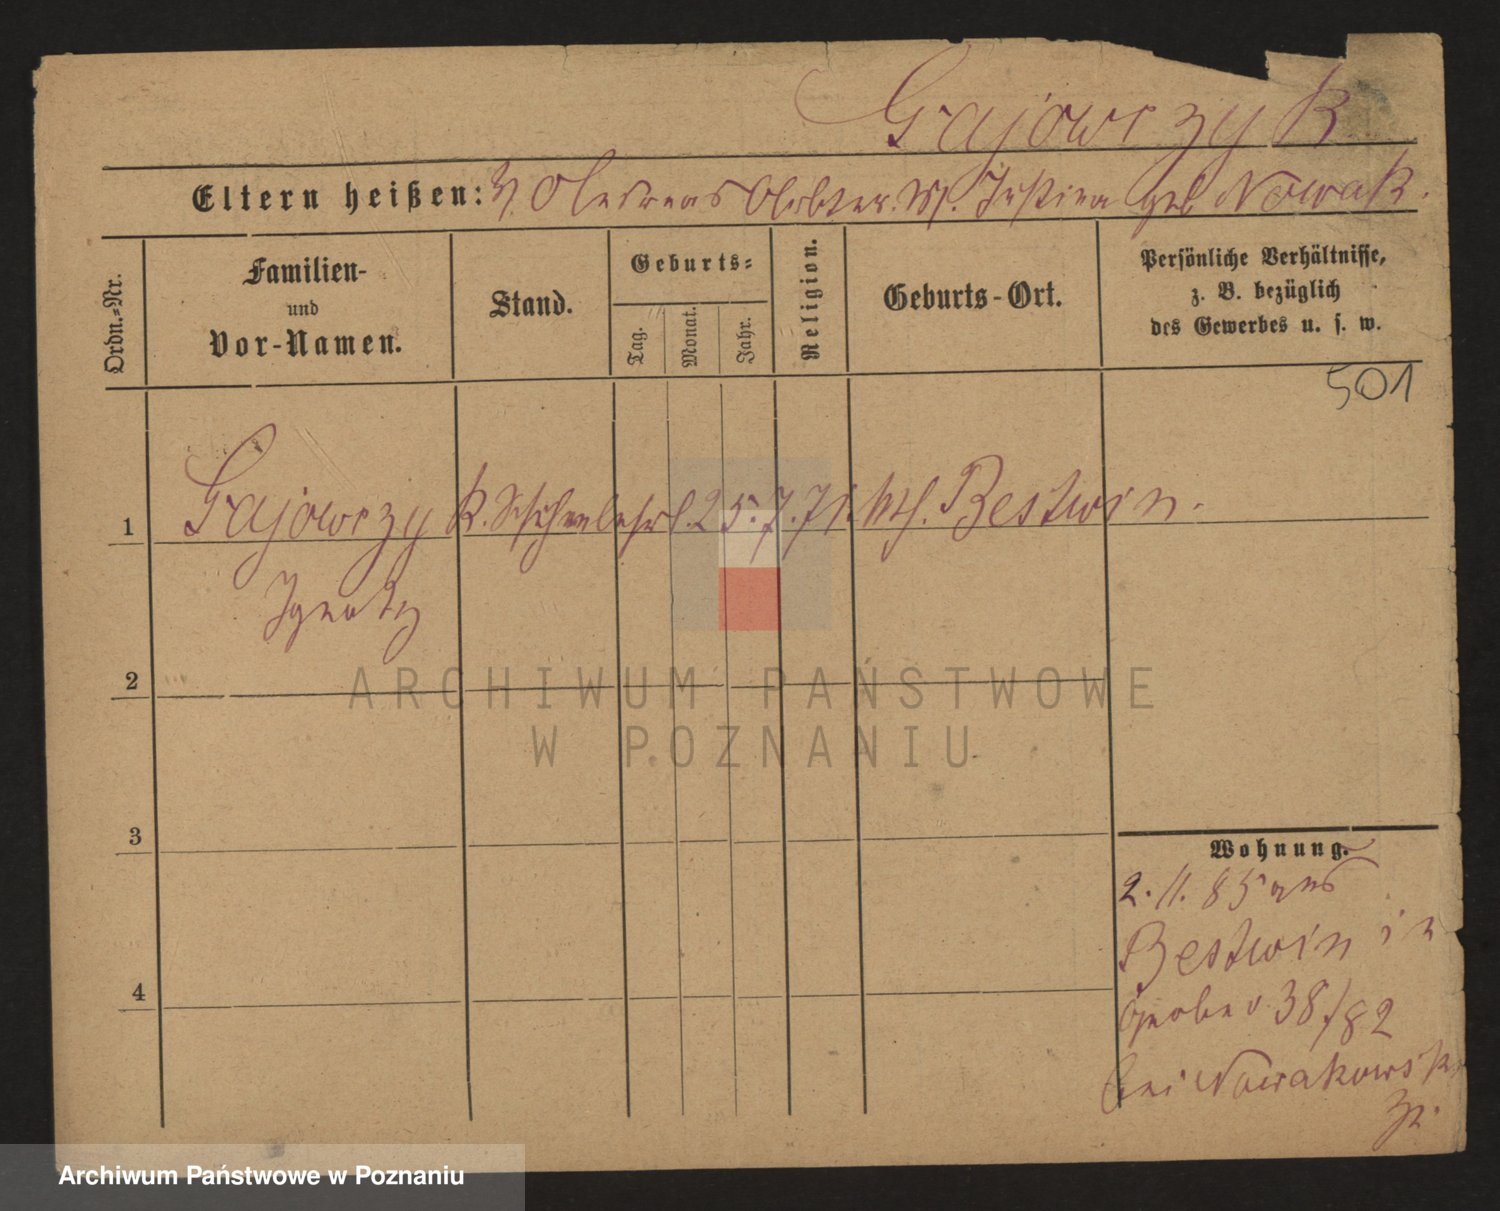 Gajowczyk
Eltern heißen: V. Andreas Arbter. M. Justina geb Nowak.
Ordn.-Nr.
Familien-
und
Vor-Namen.
Stand.
Geburts-
Tag.
Monat.
Jahr.
Religion.
Geburts-Ort.
Persönliche Verhältnisse,
z. B. bezüglich
des Gewerbes u. s. w.
501
1 Gajowczyk. 25. 7. 71. kth. Bestwin.
Ignatz
2
3
4
Wohnung.
2. 11. 85 aus
Bestwin in
Graben 38/82
bei Nowakowski
ARCHIWUM PAŃSTWOWE
W POZNANIU
Archiwum Państwowe w Poznaniu